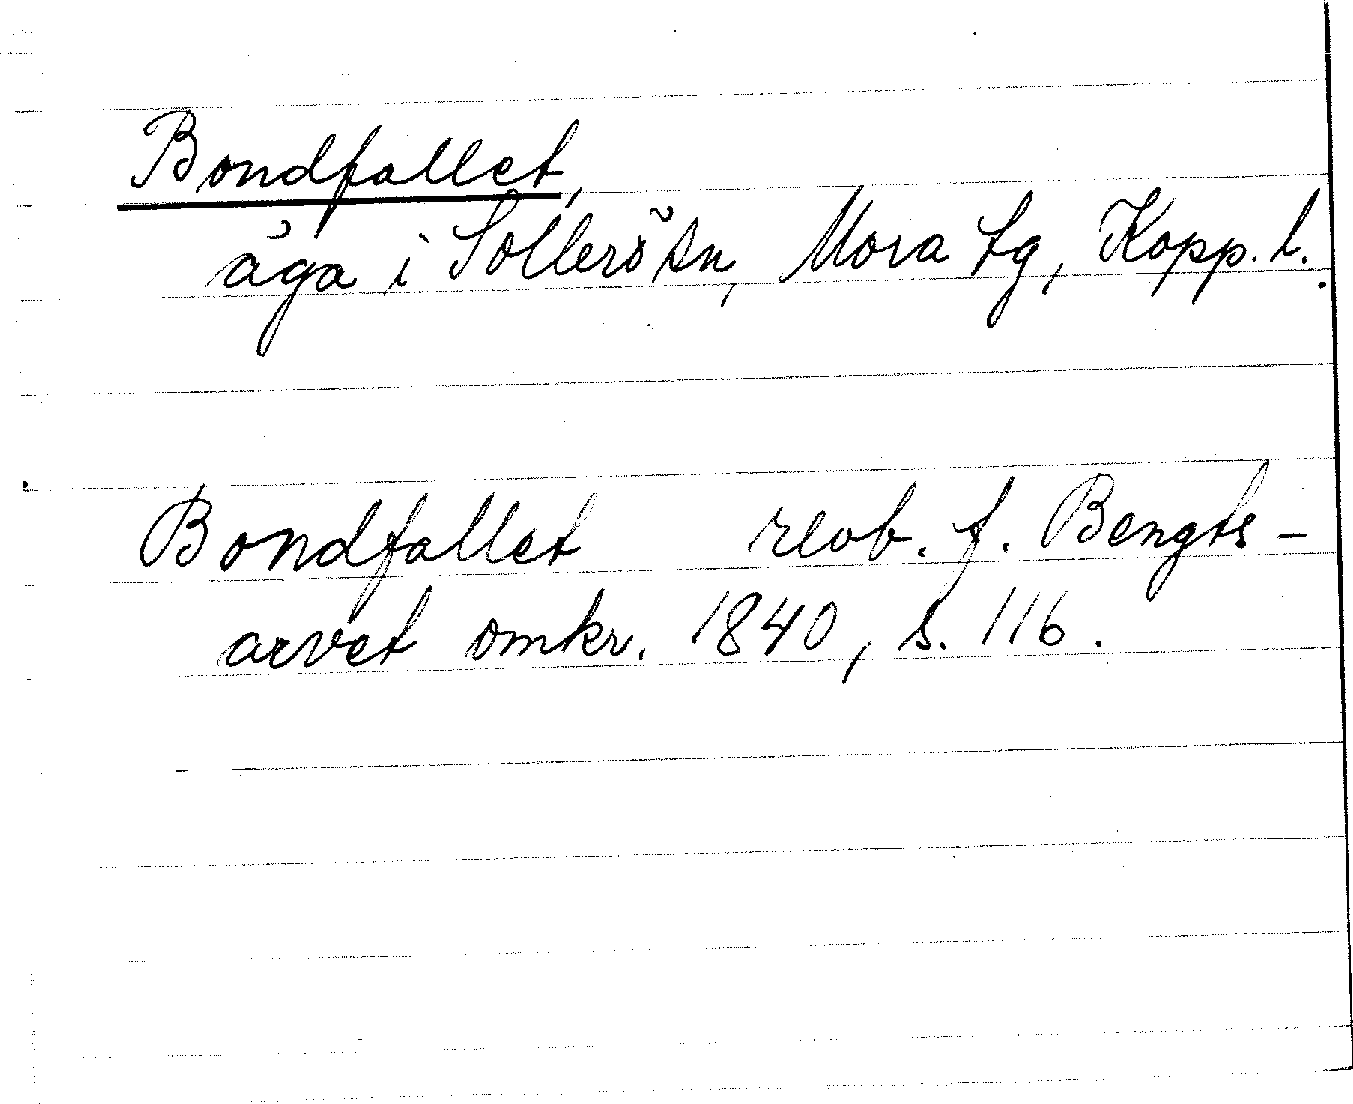 Bondfallet,
äga i Sollerö sn, Mora tg, Kopp. l.
Bondfallet revb. f. Bengts-
arvet omkr. 1840, s. 116.